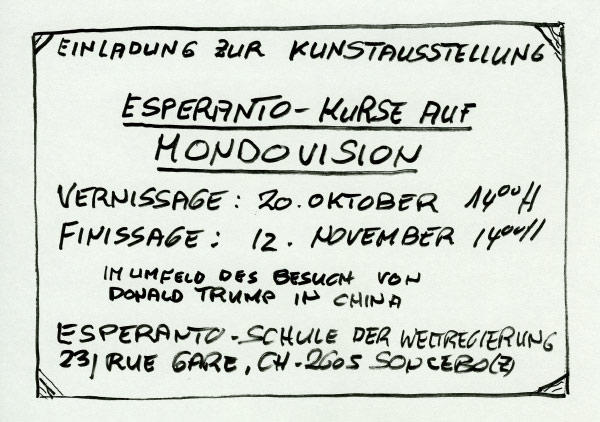 EINLADUNG ZUR KUNSTAUSSTELLUNG
ESPERANTO-KURSE AUF
MONDOVISION
VERNISSAGE: 20. OKTOBER 14ººH
FINISSAGE: 12. NOVEMBER 14ººH
IM UMFELD DES BESUCH VON
DONALD TRUMP IN CHINA
ESPERANTO-SCHULE DER WELTREGIERUNG
23, RUE GARE, CH-2605 SONCEBO(Z)